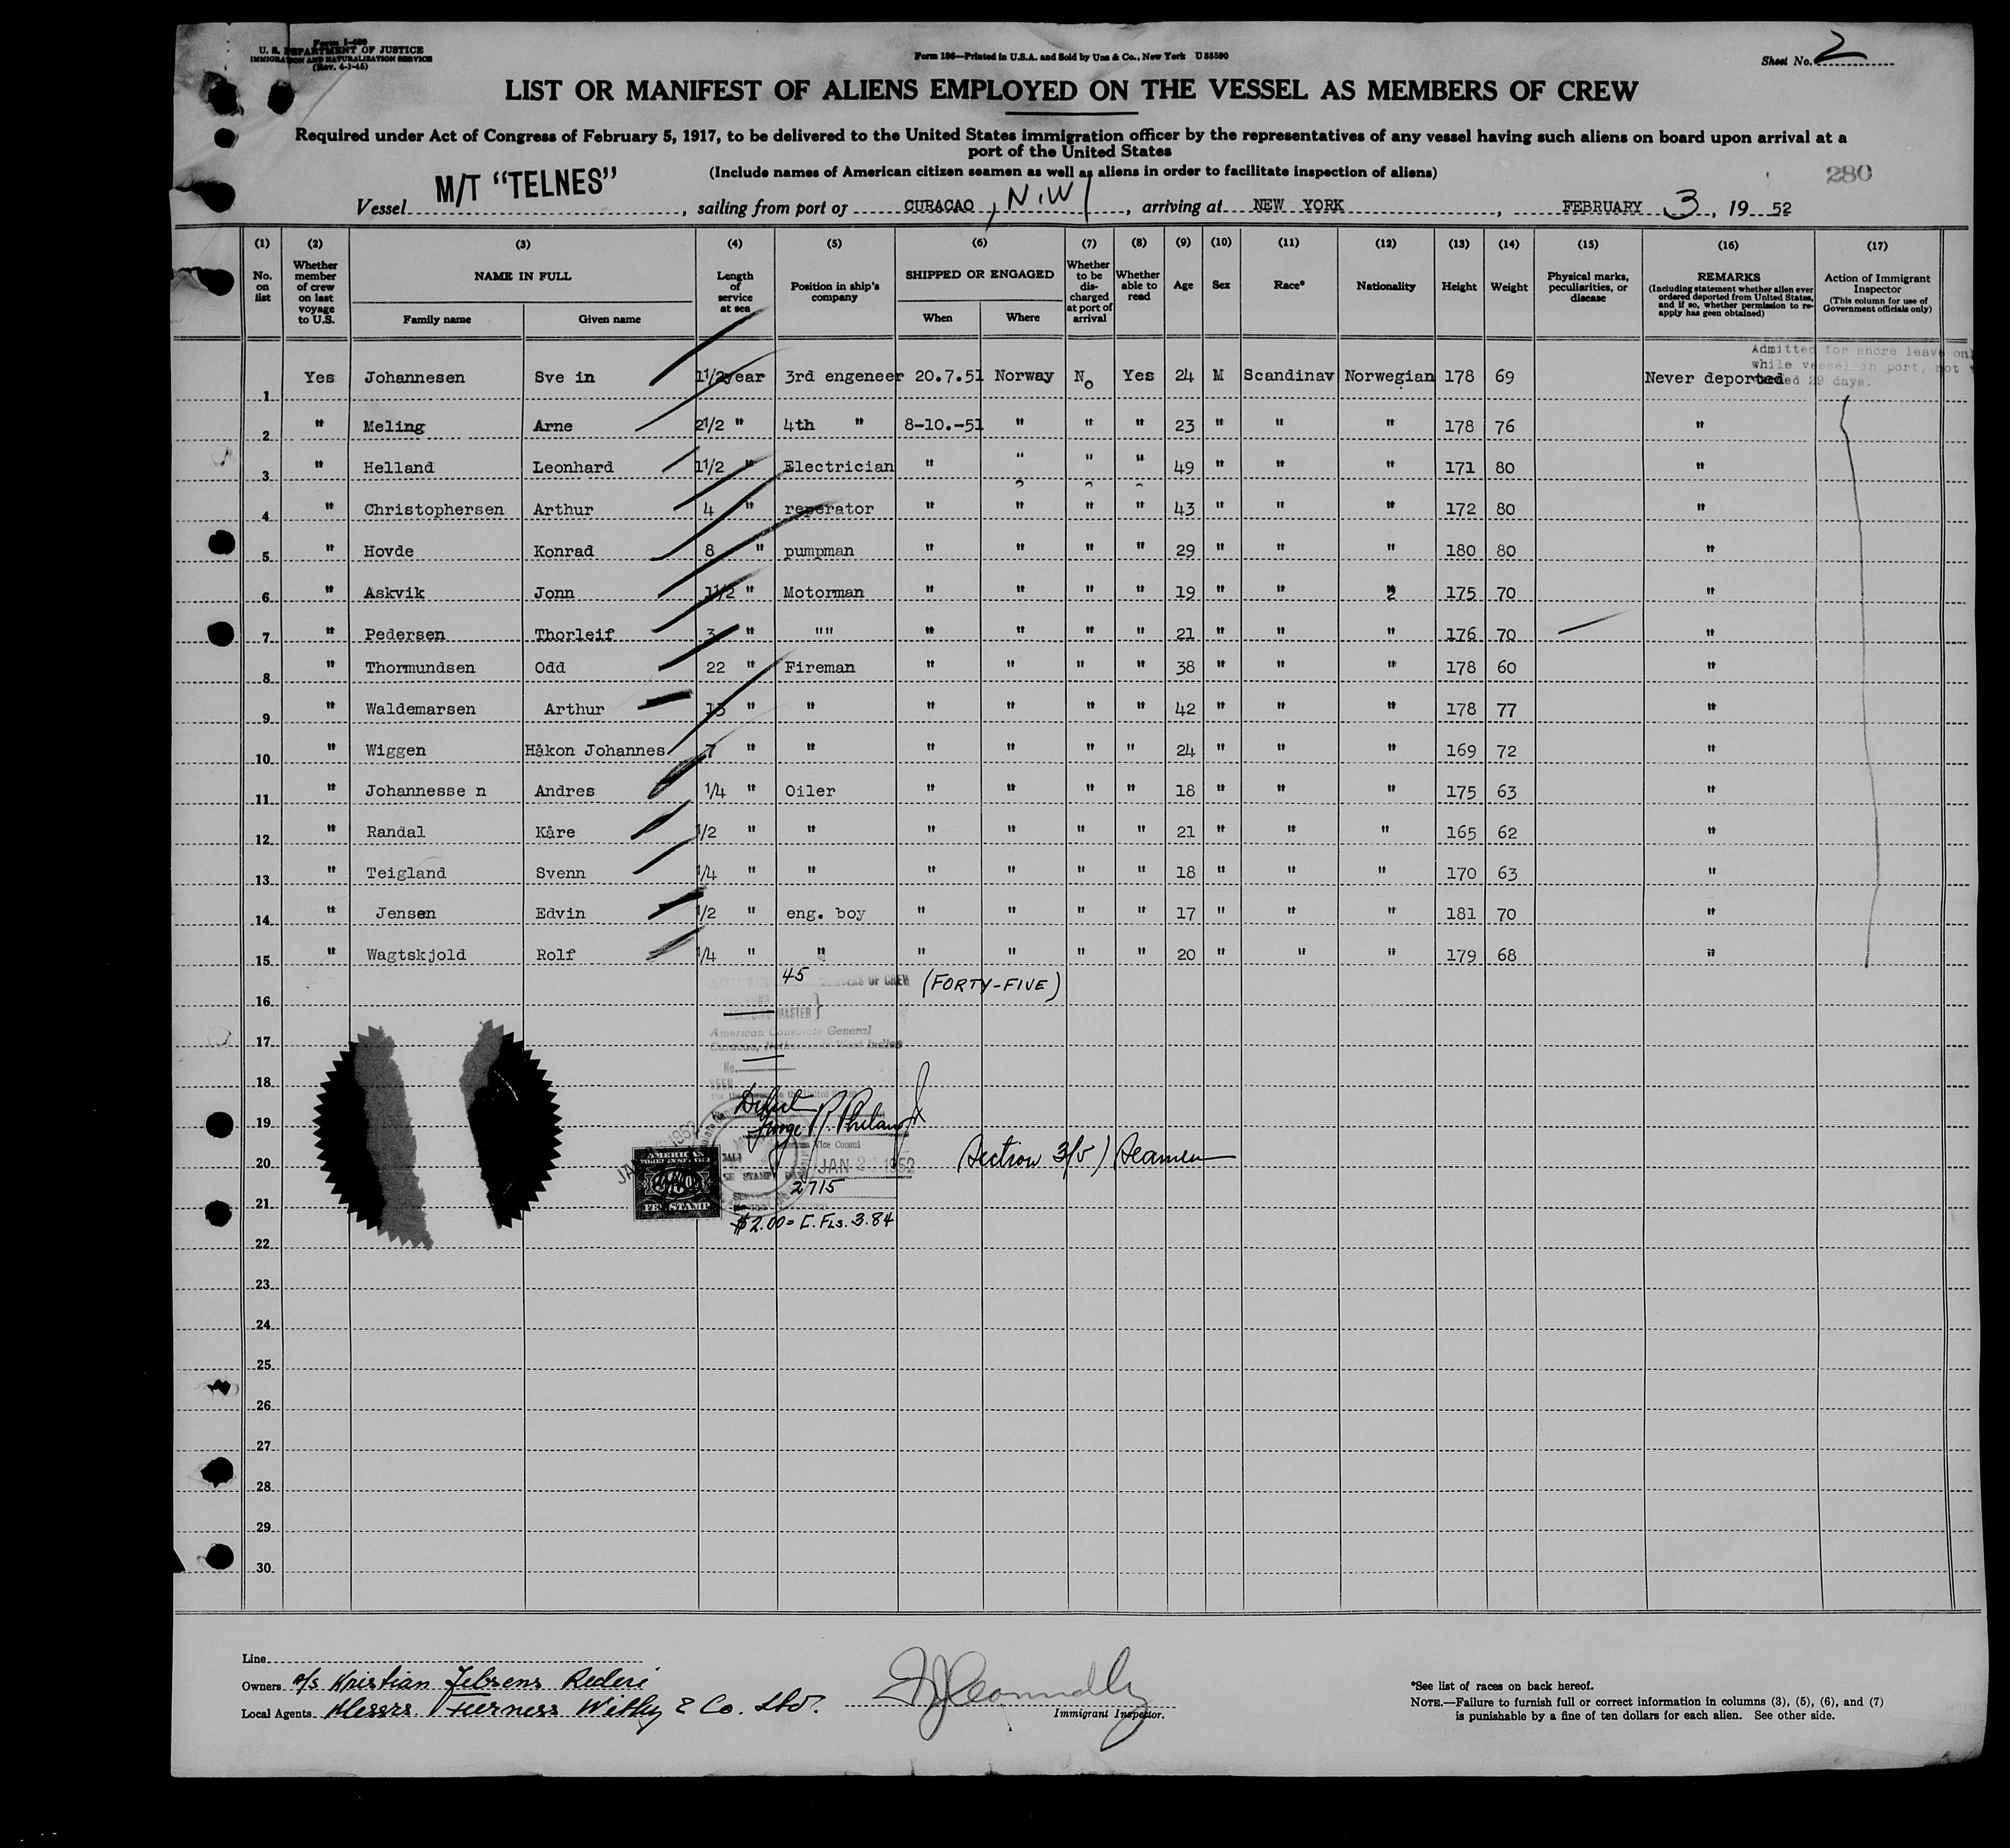 Form I-480
U. S. DEPARTMENT OF JUSTICE
IMMIGRATION AND NATURALIZATION SERVICE
(Rev. 4-1-45)
Form 186—Printed in U.S.A. and Sold by Unz & Co., New York U 55590
Sheet No. 2
LIST OR MANIFEST OF ALIENS EMPLOYED ON THE VESSEL AS MEMBERS OF CREW
Required under Act of Congress of February 5, 1917, to be delivered to the United States immigration officer by the representatives of any vessel having such aliens on board upon arrival at a
port of the United States
(Include names of American citizen seamen as well as aliens in order to facilitate inspection of aliens)
280
Vessel M/T "TELNES", sailing from port of CURACAO, N.W, arriving at NEW YORK, FEBRUARY 3, 19 52
(1) (2) (3) (4) (5) (6) (7) (8) (9) (10) (11) (12) (13) (14) (15) (16) (17)
No. on list
Whether member of crew on last voyage to U.S.
NAME IN FULL
Family name Given name
Length of service at sea
Position in ship's company
SHIPPED OR ENGAGED
When Where
Whether to be discharged at port of arrival
Whether able to read
Age
Sex
Race*
Nationality
Height
Weight
Physical marks, peculiarities, or disease
REMARKS
(Including statement whether alien ever ordered deported from United States, and if so, whether permission to re-apply has geen obtained)
Action of Immigrant Inspector
(This column for use of Government officials only)
Admitted for shore leave on
while vessel in port, not
29 days.
1 Yes Johannesen Sve in 1 1/2 year 3rd engeneer 20.7.51 Norway No Yes 24 M Scandinav Norwegian 178 69 Never deported
2 " Meling Arne 2 1/2 " 4th " 8-10.-51 " " " 23 " " " 178 76 "
3 " Helland Leonhard 1 1/2 " Electrician " " " " 49 " " " 171 80 "
4 " Christophersen Arthur 4 " reperator " " " " 43 " " " 172 80 "
5 " Hovde Konrad 8 " pumpman " " " " 29 " " " 180 80 "
6 " Askvik Jonn 1 1/2 " Motorman " " " " 19 " " " 175 70 "
7 " Pedersen Thorleif 3 " "" " " " " 21 " " " 176 70 "
8 " Thormundsen Odd 22 " Fireman " " " " 38 " " " 178 60 "
9 " Waldemarsen Arthur 13 " " " " " " 42 " " " 178 77 "
10 " Wiggen Håkon Johannes 7 " " " " " " 24 " " " 169 72 "
11 " Johannesse n Andres 1/4 " Oiler " " " " 18 " " " 175 63 "
12 " Randal Kåre 1/2 " " " " " " 21 " " " 165 62 "
13 " Teigland Svenn 1/4 " " " " " " 18 " " " 170 63 "
14 " Jensen Edvin 1/2 " eng. boy " " " " 17 " " " 181 70 "
15 " Wagtskjold Rolf 1/4 " " " " " " 20 " " " 179 68 "
45 MEMBERS OF CREW (FORTY-FIVE)
16
MASTER
American Consulate General
17
Curacao, Netherlands West Indies
No.
18
SEEN
19
Vice Consul
20
JAN 1952
Section 3(5) Seamen
AMERICAN
FEE STAMP
21
2715
$2.00 = C. Fls. 3.84
22
23
24
25
26
27
28
29
30
Line
Owners A/S Kristian Jebsens Rederi
Local Agents Messrs. Furness Withy & Co. Ltd.
Immigrant Inspector.
*See list of races on back hereof.
NOTE.—Failure to furnish full or correct information in columns (3), (5), (6), and (7)
is punishable by a fine of ten dollars for each alien. See other side.